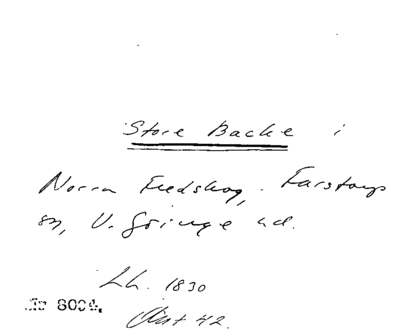 Store Backe i
Norra Fredskog, Farstorps
sn, V. Göinge hd.
Lh. 1830
8004.
Akt 42.